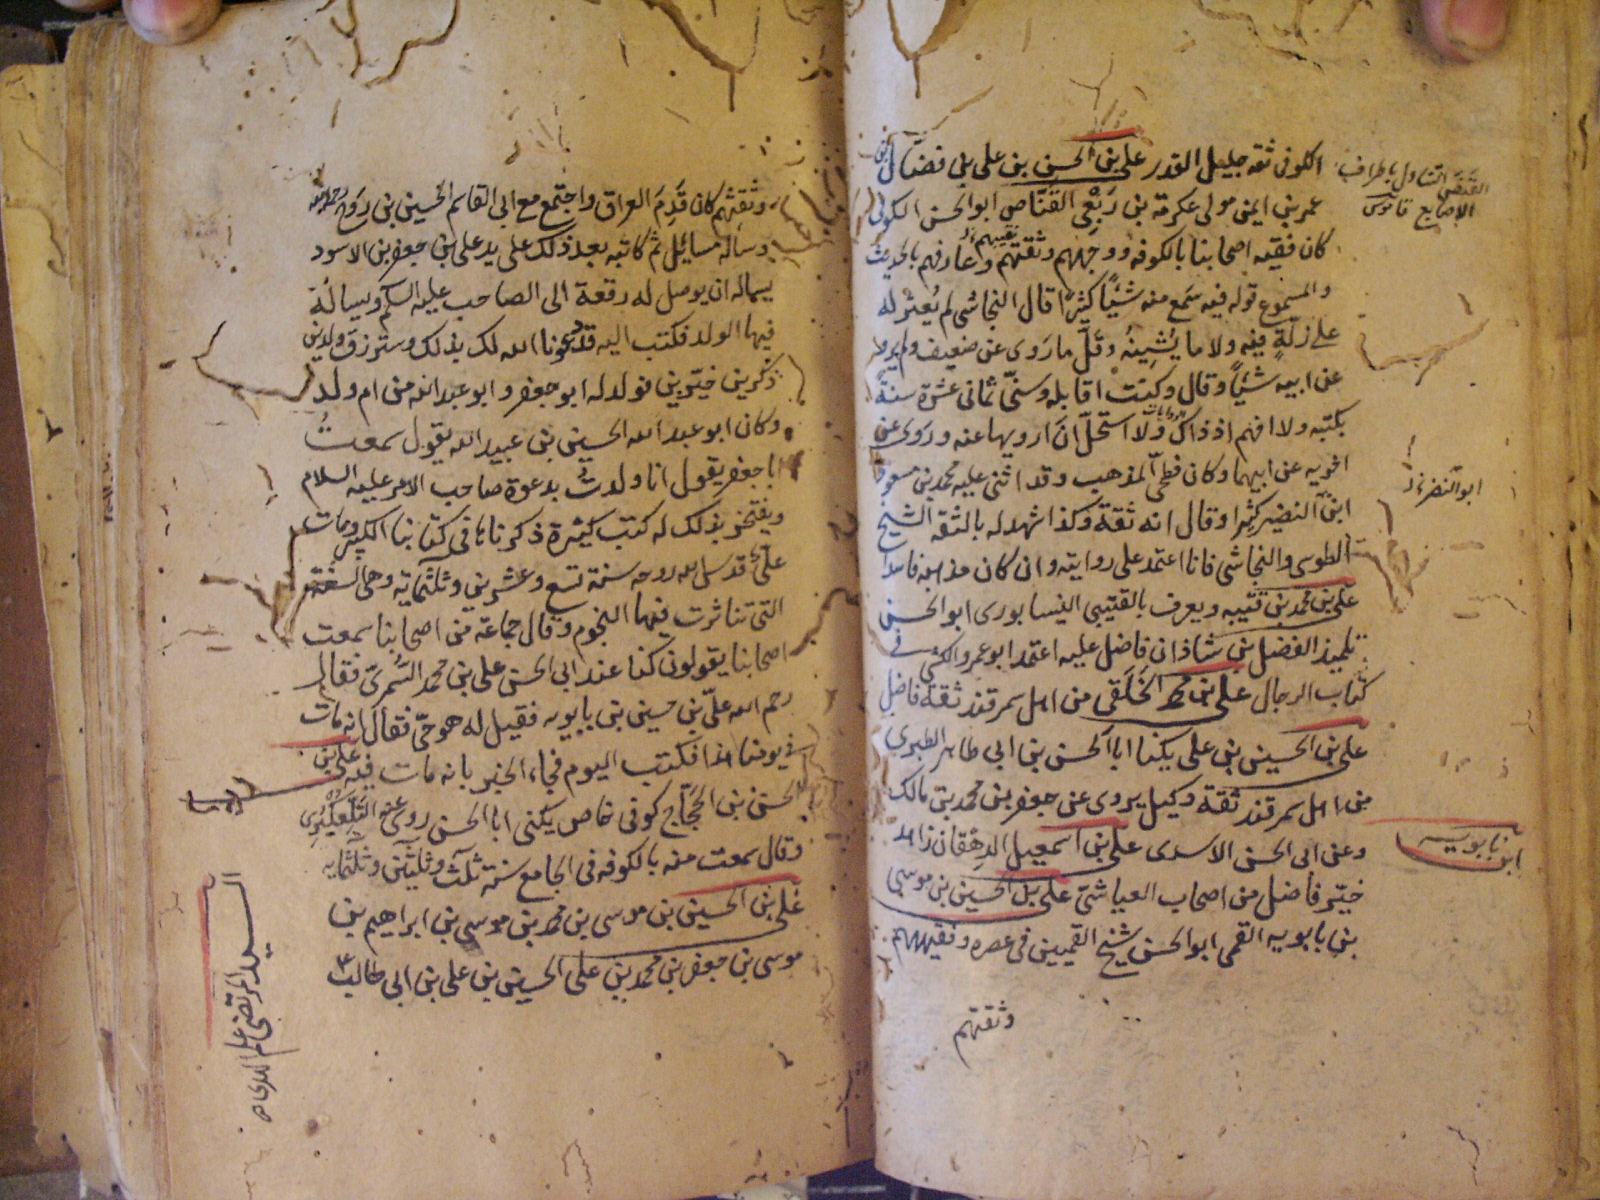 الكوفى ثقه جليل القدر على بن الحسن بن على بن فضال بن
عمر بن ايمن مولى عكرمة بن رَبْعِى القنّاص ابو الحسن الكوفى
كان فقيه اصحابنا بالكوفه ووجههم وثقتهم وعارفهم بالحديث
والمسموع قوله فيه سَمِعَ منه شيئًا كثيرًا قال النجاشى لم يُعثر له
على زلةٍ فيه ولا ما يُشينهُ وقلّ ما رَوى عن ضعيف ولم يرو
عن ابيه شيئًا وقال وكنت اقابله وسنّى ثمانى عشرة سنةً
بكتبه ولا افهم اذ ذاك الروايات ولا استحلّ اَن ارويها عنه ورَوى عن
اخويه عن ابيهما وكان فطحىّ المذهب وقد اثنى عليه محمد بن مسعود
ابن النضير كثيرا وقال انه ثقة وكذا شهد له بالثقه الشيخ
الطوسى والنجاشى فانا اعتمد على روايته وان كان مذهبه فاسدا
على بن محمد بن قتيبه ويعرف بالقتيبى النيسابورى ابو الحسن
تلميذ الفضل بن شاذان فاضل عليه اعتمد ابو عمرو الكشى فى
كتاب الرجال على بن محمد الخَلَقى من اهل سمرقند ثقة فاضل
على بن الحسين بن على يكنا ابا الحسن بن ابى طاهر الطبرى
من اهل سمرقند ثقة وكيل يروى عن جعفر بن محمد بن مالك
وعن ابى الحسن الاسدى على بن اسمعيل الدِهْقان زاهد
خيّر فاضل من اصحاب العياشىّ على بن الحسين بن موسى
بن بابويه القمى ابو الحسن شيخ القميين فى عصره وفقيههم
وثقتهم
القَنَصُ التناول باطراف
الاصابع قاموس
ابو النضر
ابن بابويه
وثقتهم كان قَدِمَ العراق واجتمع مع ابى القاسم الحسين بن روح رحمه الله
وسأله مسائل ثم كاتبه بعد ذلك على يد على بن جعفر بن الاسود
يسأله ان يوصل له رقعة الى الصاحب عليه السلم ويسالهُ
فيها الولد فكتب اليه قد دعونا الله لك بذلك وسترزق ولدين
ذكرين خيّرين فولد له ابو جعفر وابو عبد الله من ام ولد
وكان ابو عبد الله الحسين بن عبيد الله يقول سمعتُ
ابا جعفر يقول انا ولدتُ بدعوة صاحب الامر عليه السلام
ويفتخر بذلك له كتب كثيرة ذكرناها فى كتابنا الكبير ومات
علىّ قدس الله روحه سنة تسع وعشرين وثلثمائة وهى السنة
التى تناثرت فيها النجوم وقال جماعة من اصحابنا سمعت
اصحابنا يقولون كنا عند ابى الحسن على بن محمد السُمرىّ فقال
رحم الله علىّ بن حسين بن بابويه فقيل له هو حىّ فقال انه مات
فى يومنا هذا فكتب اليوم فجاء الخبر بانه مات فيه على بن
الحسن بن الحجّاج كوفى خاص يكنى ابا الحسن روى عنه التَلَّعُكْبُرِى
وقال سمعت منه بالكوفه فى الجامع سنة ثلث وثلثين وثلثمايه
على بن الحسين بن موسى بن محمد بن موسى بن ابراهيم بن
موسى بن جعفر بن محمد بن على الحسين بن على بن ابى طالب ع
السيد المرتضى علم الهدى